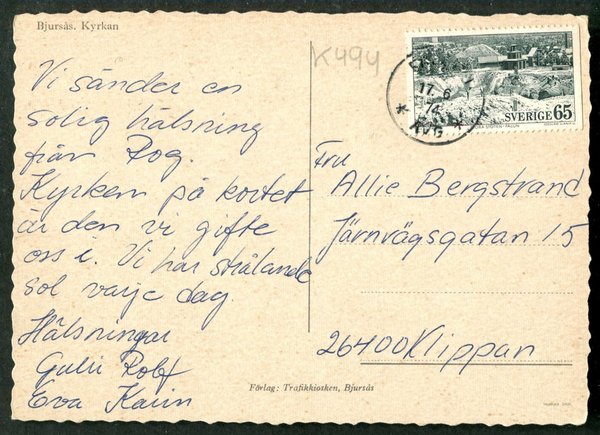 Bjursås. Kyrkan
K494
17. 6
74
KVG
SVERIGE 65
Vi sänder en
solig hälsning
från Rog.
Kyrkan på kortet
är den vi gifte
oss i. Vi har strålande
sol varje dag.
Hälsningar
Rolf
Eva Karin
Fru
Allie Bergstrand
Järnvägsgatan 15
26400 Klippan
Förlag: Trafikkiosken, Bjursås